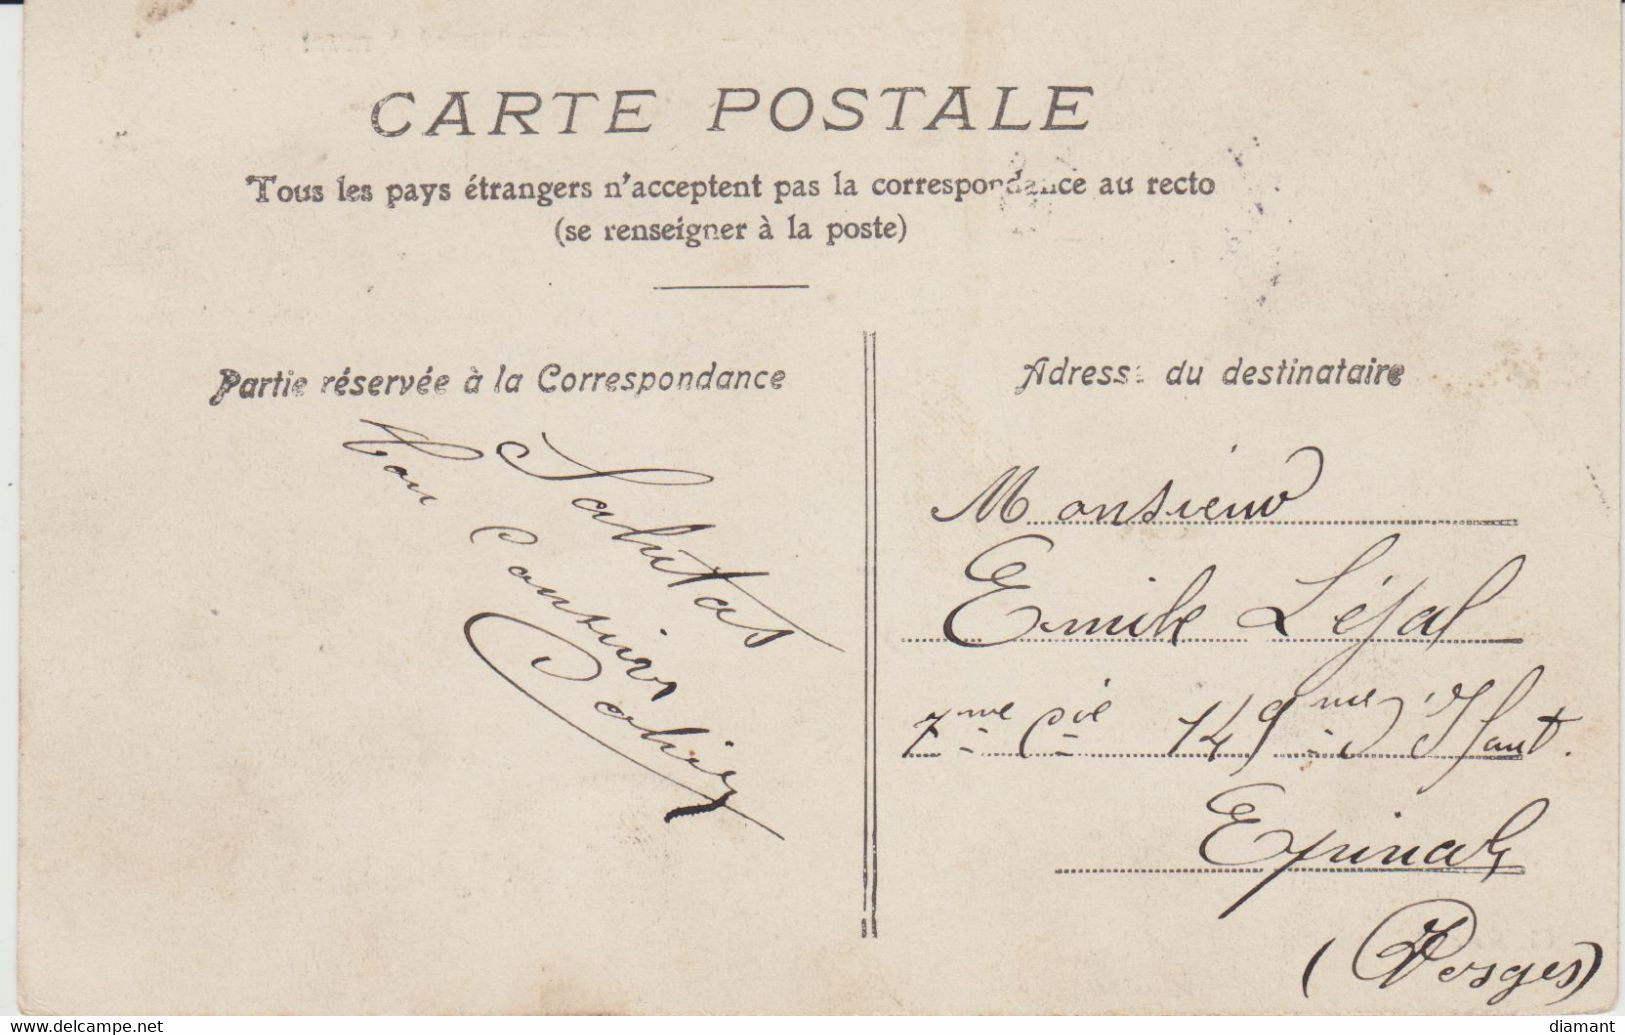 CARTE POSTALE
Tous les pays étrangers n'acceptent pas la correspondance au recto
(se renseigner à la poste)
Partie réservée à la Correspondance
Adresse du destinataire
Salutas
Ton Cousin
Monsieur
Emile Léjal
7me Cie 149me d'Ifant.
Epinal
(Vosges)
www.delcampe.net
diamant